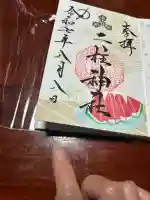 奉拝
二柱神社
令和七年八月八日